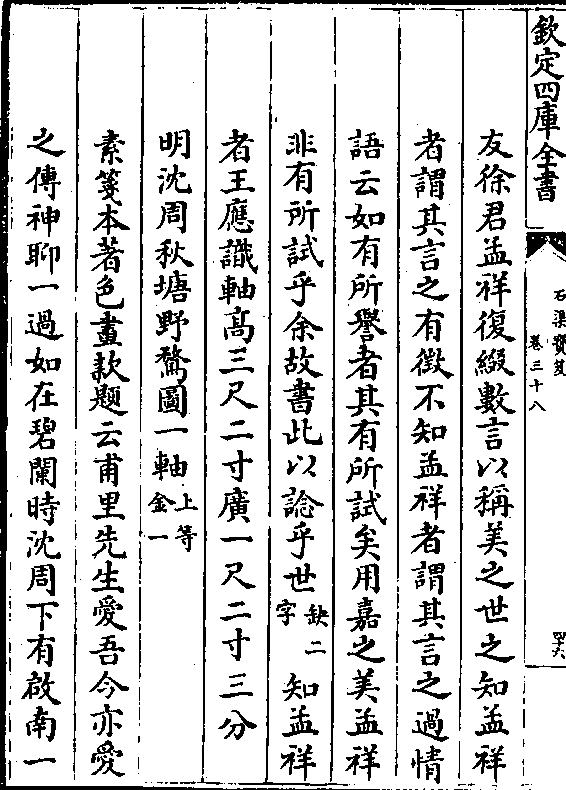 欽定四庫全書
石渠寶笈
卷三十八
四十六
友徐君孟祥復綴數言以稱美之世之知孟祥
者謂其言之有徵不知孟祥者謂其言之過情
語云如有所譽者其有所試矣用嘉之美孟祥
非有所試乎余故書此以諗乎世缺二字知孟祥
者王應識軸高三尺二寸廣一尺二寸三分
明沈周秋塘野鶩圖一軸上等金一
素箋本著色畫款題云甫里先生愛吾今亦愛
之傳神聊一過如在碧闌時沈周下有啟南一